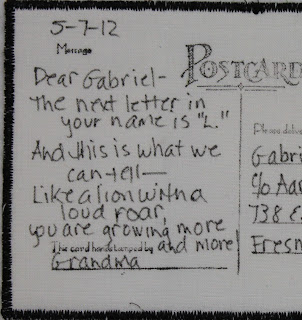 5-7-12
Message
Dear Gabriel-
The next letter in
your name is "L."
And this is what we
can tell—
Like a lion with a
loud roar,
you are growing more
and more
The card hand stamped by
Grandma
POSTCARD
Please deliver
Gabri
c/o Aar
738 E
Fresn